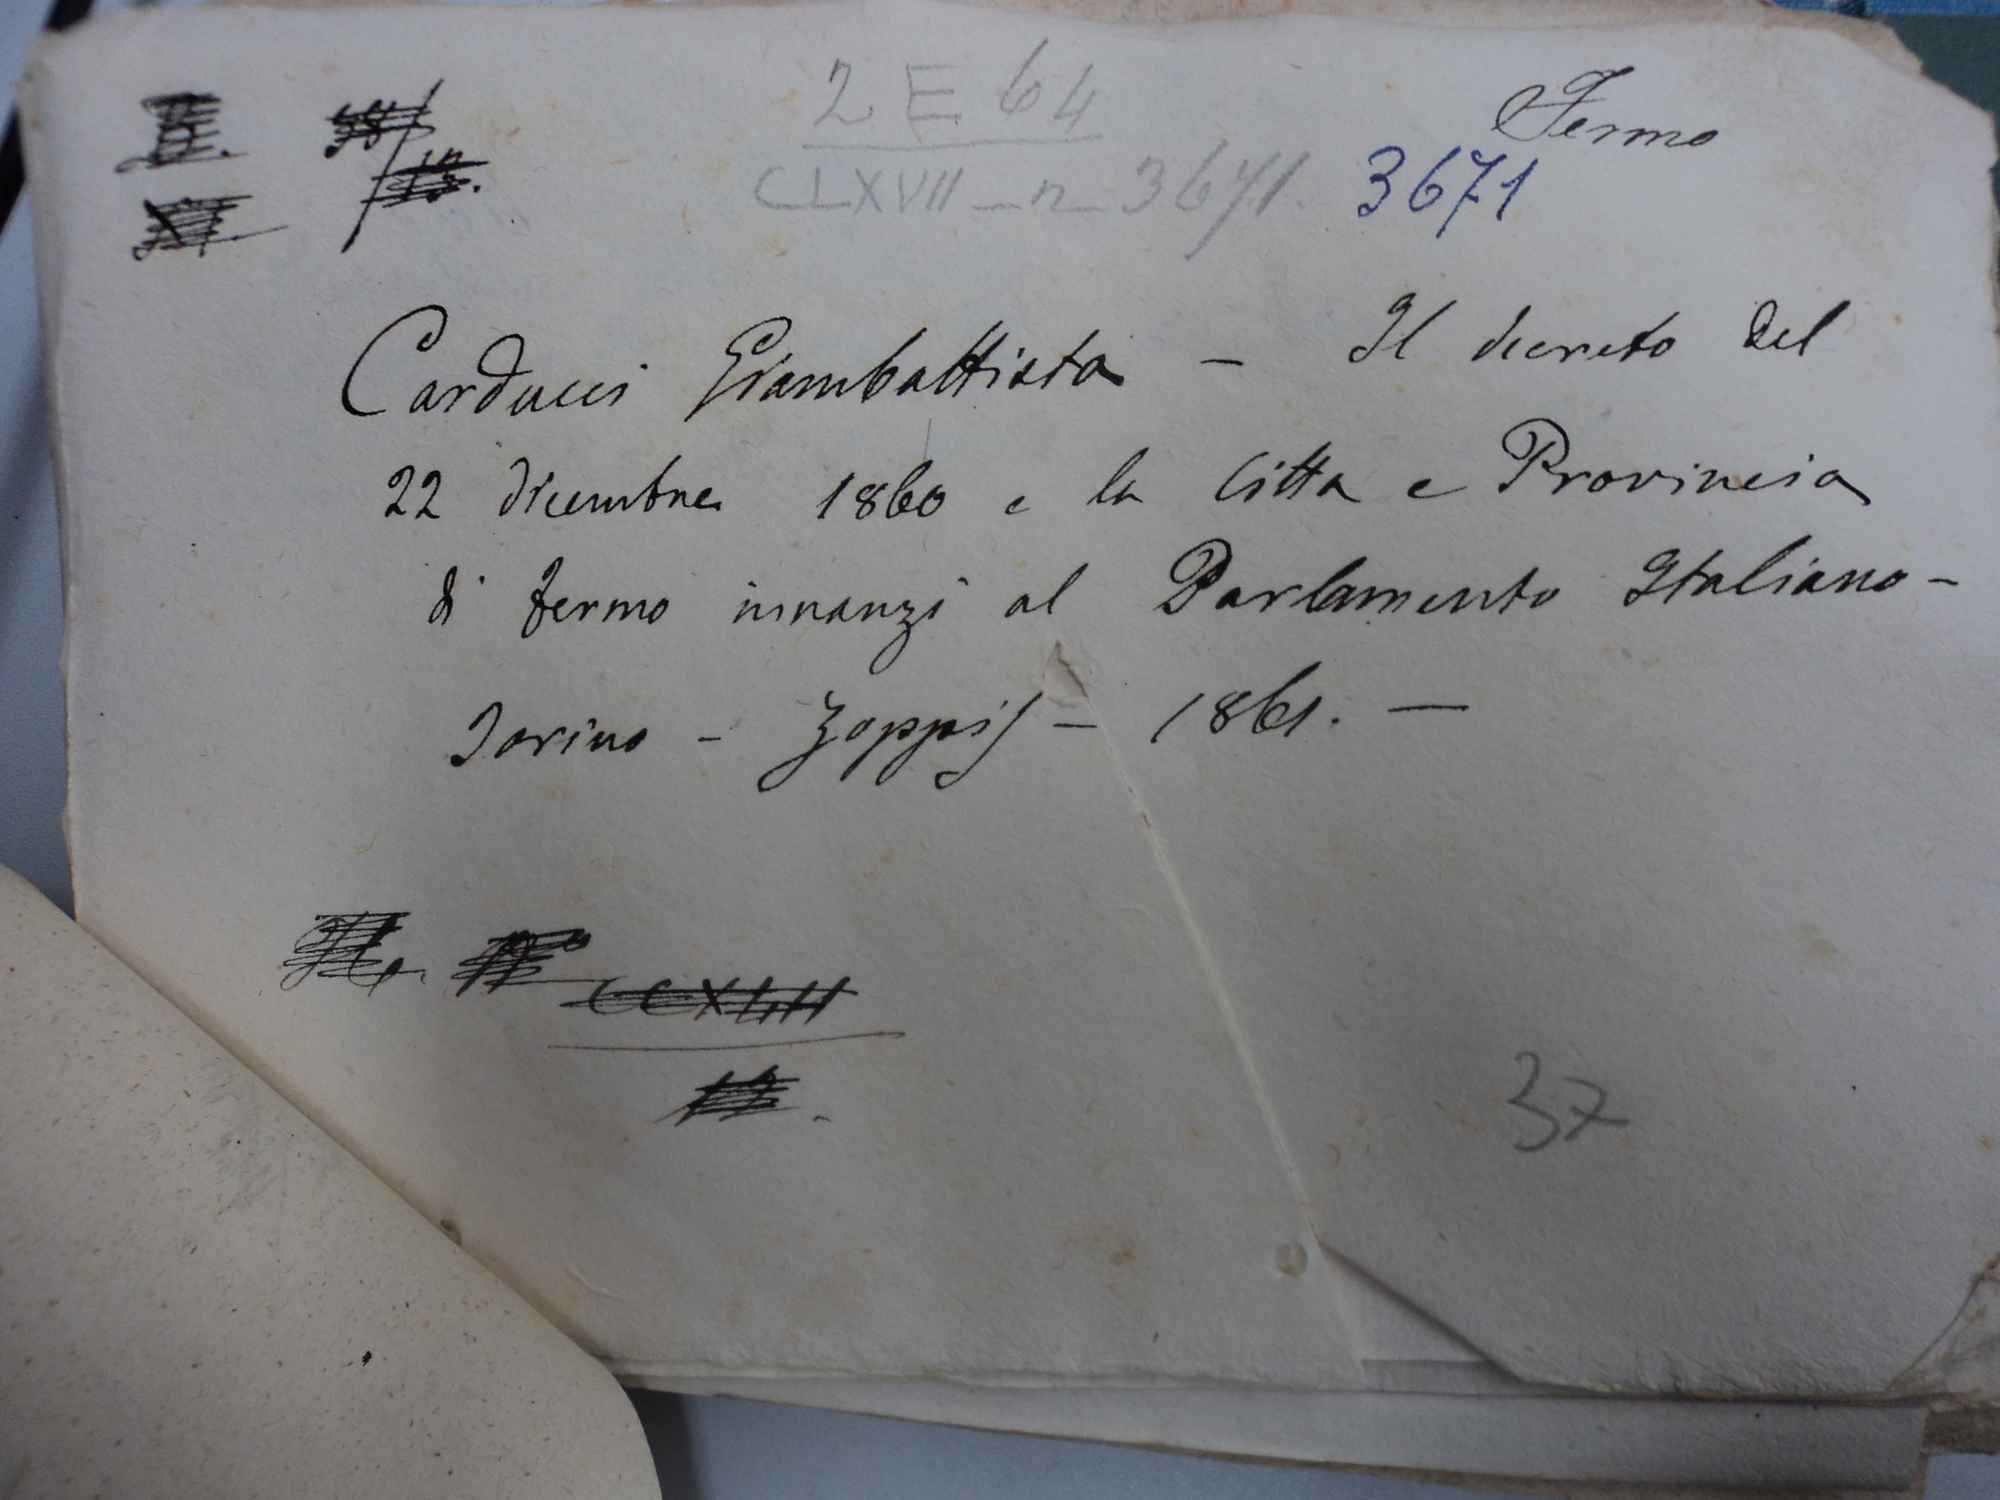 2 E 64
Fermo
CLXVII - n 3671. 3671
Carducci Giambattista - Il decreto del
22 dicembre 1860 e la Città e Provincia
di Fermo innanzi al Parlamento Italiano -
Torino - Zoppis - 1861. -
CCXLIII
12.
37